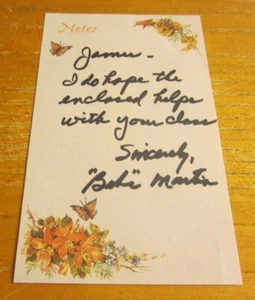 Notes
James -
I do hope the
enclosed helps
with your class
Sincerely,
"Babe" Martin